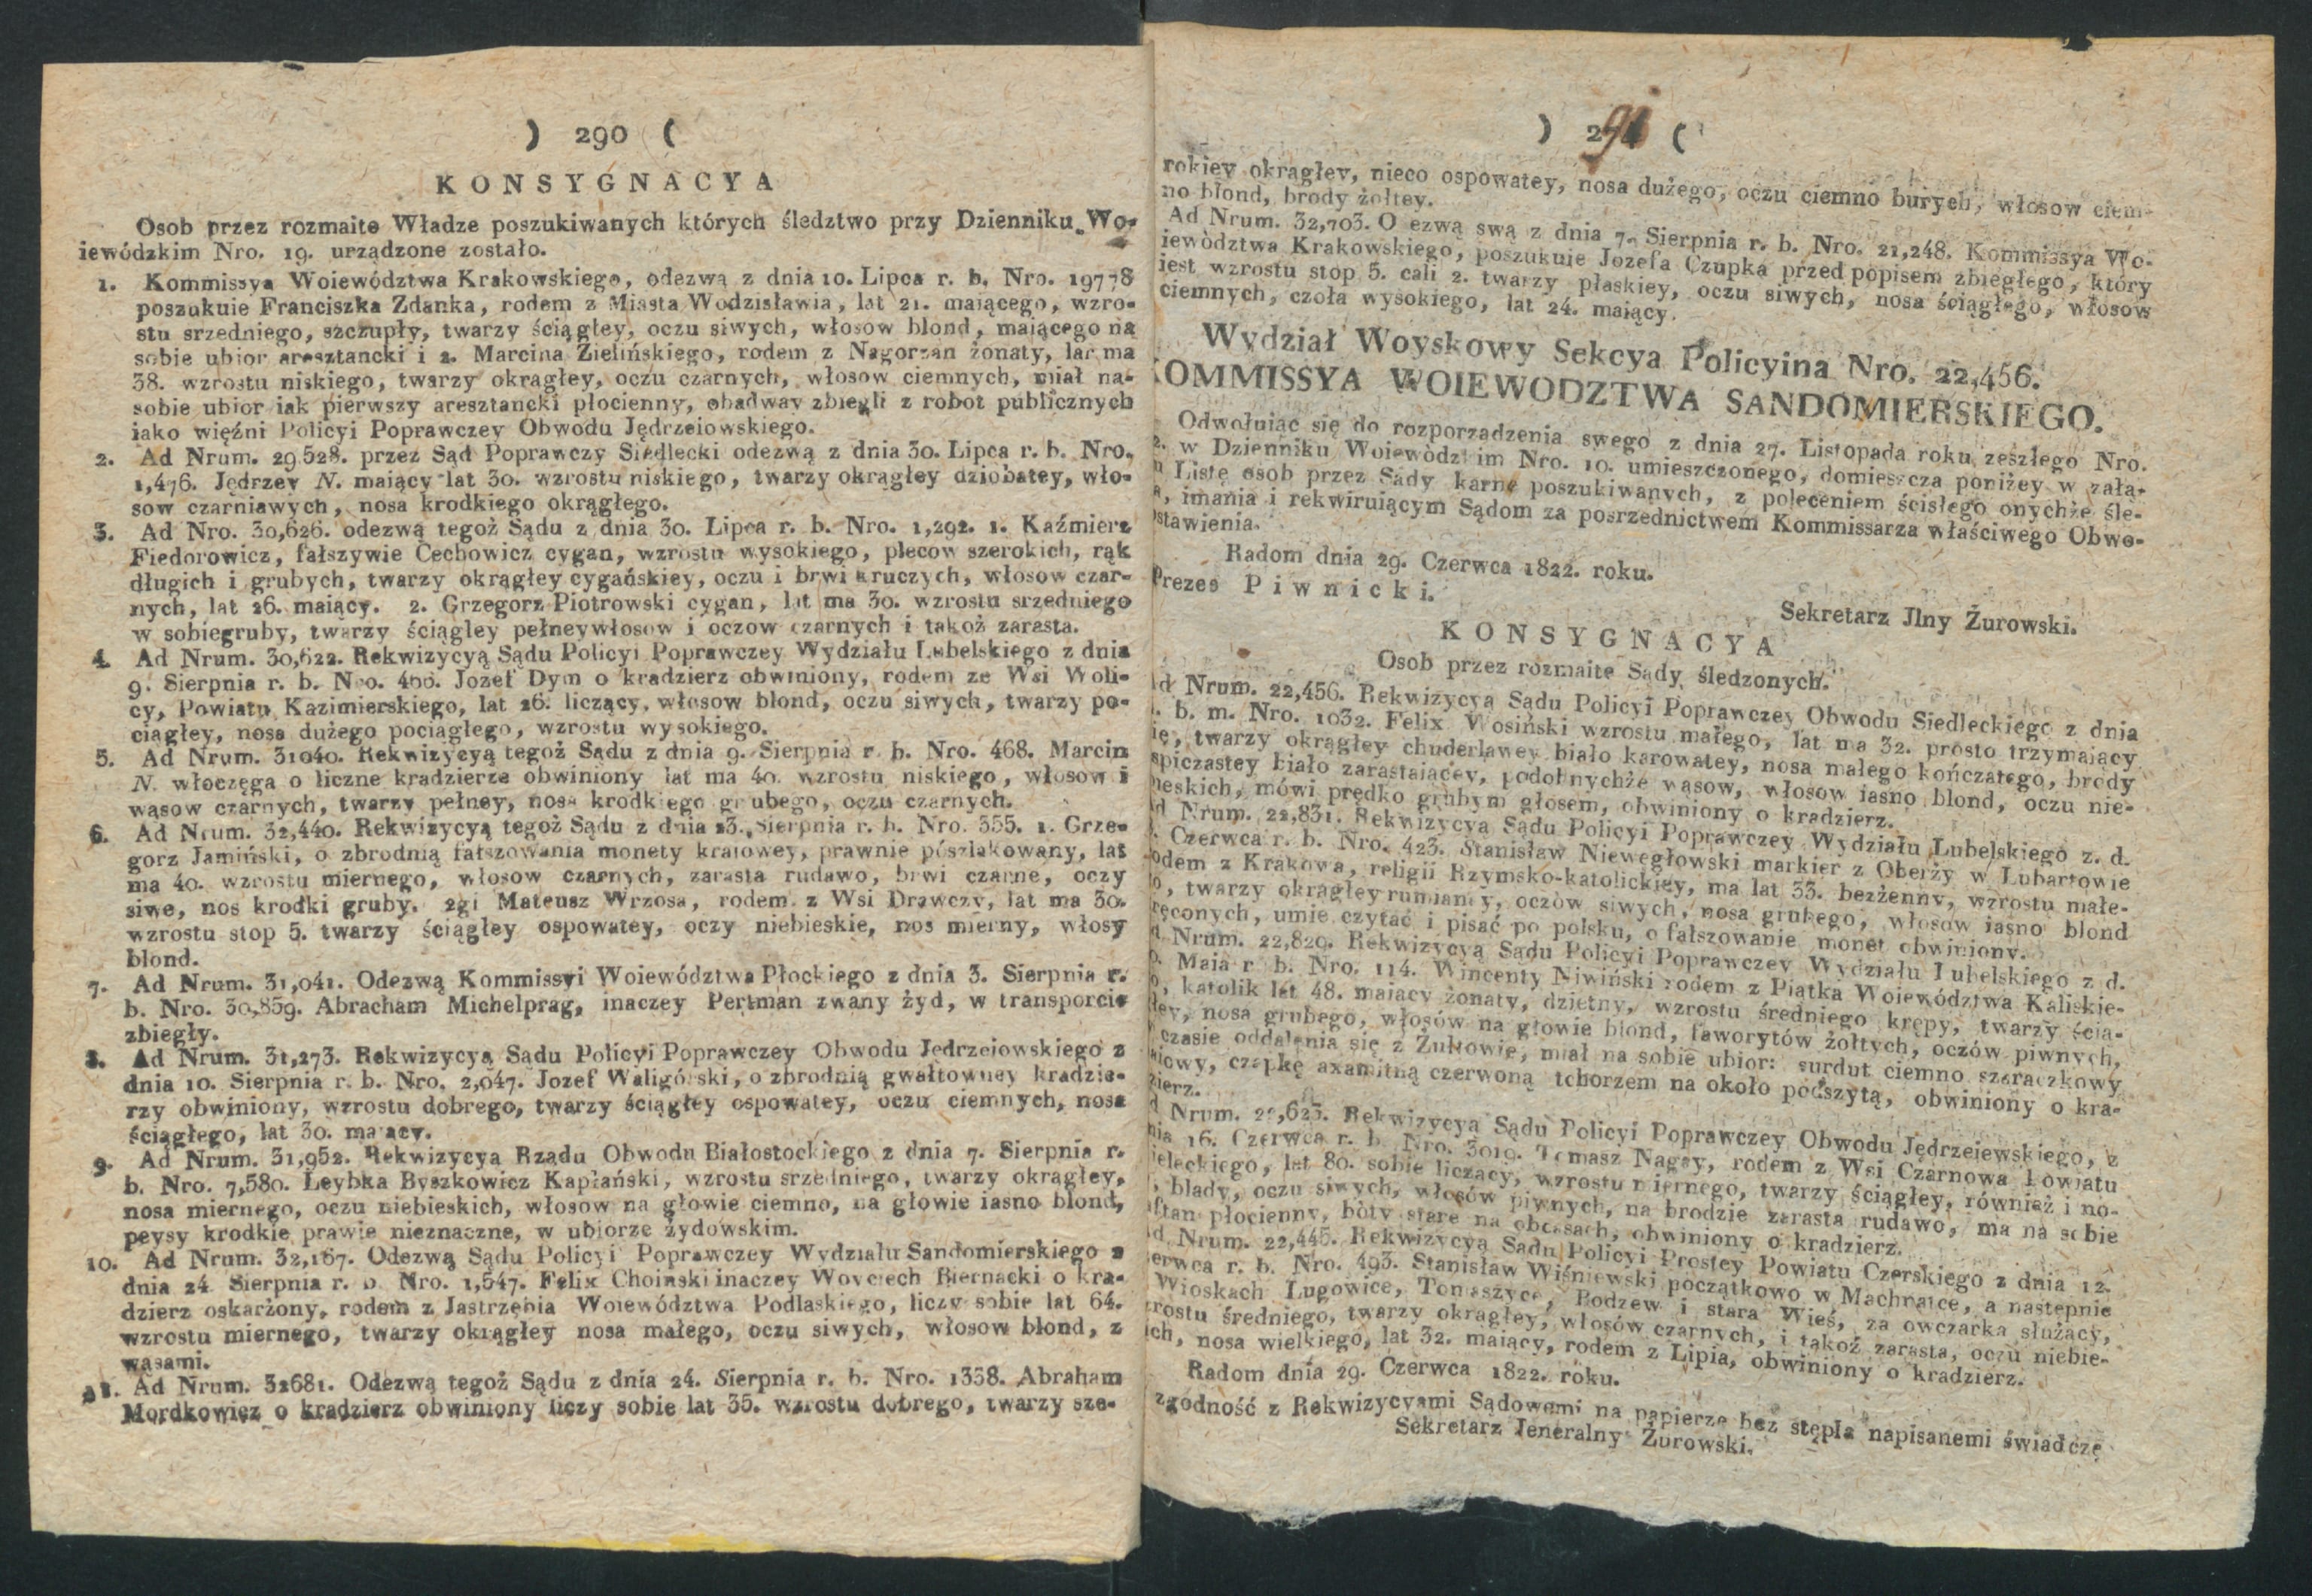 ) 290 (
KONSYGNACYA
Osob przez rozmaite Władze poszukiwanych których śledztwo przy Dzienniku Wo-
iewódzkim Nro. 19. urządzone zostało.
1. Kommissya Woiewództwa Krakowskiego, odezwą z dnia 10. Lipca r. b. Nro. 19778
poszukuie Franciszka Zdanka, rodem z Miasta Wodzisławia, lat 21. maiącego, wzro-
stu srzedniego, szczupły, twarzy ściągłey, oczu siwych, włosow blond, maiącego na
sobie ubior aresztancki i 2. Marcina Zielińskiego, rodem z Nagorzan żonaty, lat ma
38. wzrostu niskiego, twarzy okrągłey, oczu czarnych, włosow ciemnych, miał na-
sobie ubior iak pierwszy aresztancki płocienny, obadway zbiegli z robot publicznych
iako więźni Policyi Poprawczey Obwodu Jędrzeiowskiego.
2. Ad Nrum. 29528. przez Sąd Poprawczy Siedlecki odezwą z dnia 30. Lipca r. b. Nro.
1,476. Jędrzey N. maiący lat 30. wzrostu niskiego, twarzy okrągłey dziobatey, wło-
sow czarniawych, nosa krodkiego okrągłego.
3. Ad Nro. 30,626. odezwą tegoż Sądu z dnia 30. Lipca r. b. Nro. 1,292. 1. Kaźmierz
Fiedorowicz, fałszywie Cechowicz cygan, wzrostu wysokiego, plecow szerokich, rąk
długich i grubych, twarzy okrągłey cygańskiey, oczu i brwi kruczych, włosow czar-
nych, lat 26. maiący. 2. Grzegorz Piotrowski cygan, lat ma 30. wzrostu srzedniego
w sobiegruby, twarzy ściągley pełneywłosow i oczow czarnych i takoż zarasta.
4. Ad Nrum. 30,622. Rekwizycyą Sądu Policyi Poprawczey Wydziału Lubelskiego z dnia
9. Sierpnia r. b. Nro. Jozef Dym o kradzierz obwiniony, rodem ze Wsi Woli-
cy, Powiatu Kazimierskiego, lat 26. liczący, włosow blond, oczu siwych, twarzy po-
ciągłey, nosa dużego pociągłego, wzrostu wysokiego.
5. Ad Nrum. 31040. Rekwizycyą tegoż Sądu z dnia 9. Sierpnia r. b. Nro. 468. Marcin
N. włoczęga o liczne kradzierze obwiniony lat ma 40. wzrostu niskiego, włosow i
wąsow czarnych, twarzy pełney, nosa krodkiego grubego, oczu czarnych.
6. Ad Nrum. 32,440. Rekwizycyą tegoż Sądu z dnia 23. Sierpnia r. b. Nro. 355. 1. Grze-
gorz Jamiński, o zbrodnią fałszowania monety kraiowey, prawnie poszlakowany, lat
ma 40. wzrostu miernego, włosow czarnych, zarasta rudawo, brwi czarne, oczy
siwe, nos krodki gruby. 2gi Mateusz Wrzosa, rodem z Wsi Drawczy, lat ma 30.
wzrostu stop 5. twarzy ściągłey ospowatey, oczy niebieskie, nos mierny, włosy
blond.
7. Ad Nrum. 31,041. Odezwą Kommissyi Woiewództwa Płockiego z dnia 3. Sierpnia r.
b. Nro. 30,859. Abracham Michelprag, inaczey Pertman zwany żyd, w transporcie
zbiegły.
8. Ad Nrum. 31,273. Rekwizycyą Sądu Policyi Poprawczey Obwodu Jędrzeiowskiego z
dnia 10. Sierpnia r. b. Nro. 2,047. Jozef Waligórski, o zbrodnią gwałtowney kradzie-
rzy obwiniony, wzrostu dobrego, twarzy ściągłey ospowatey, oczu ciemnych, nosa
ściągłego, lat 30. maiący.
9. Ad Nrum. 31,952. Rekwizycyą Rządu Obwodu Białostockiego z dnia 7. Sierpnia r.
b. Nro. 7,580. Leybka Byszkowicz Kapłański, wzrostu srzedniego, twarzy okrągłey,
nosa miernego, oczu niebieskich, włosow na głowie ciemno, na głowie iasno blond,
peysy krodkie prawie nieznaczne, w ubiorze żydowskim.
10. Ad Nrum. 32,167. Odezwą Sądu Policyi Poprawczey Wydziału Sandomierskiego z
dnia 24 Sierpnia r. b. Nro. 1,547. Felix Choinski inaczey Woyciech Biernacki o kra-
dzierz oskarżony, rodem z Jastrzębia Woiewództwa Podlaskiego, liczy sobie lat 64.
wzrostu miernego, twarzy okrągłey nosa małego, oczu siwych, włosow blond, z
wąsami.
11. Ad Nrum. 32681. Odezwą tegoż Sądu z dnia 24. Sierpnia r. b. Nro. 1338. Abraham
Mordkowicz o kradzierz obwiniony liczy sobie lat 35. wzrostu dobrego, twarzy sze-
) 291 (
rokiey okrągłey, nieco ospowatey, nosa dużego, oczu ciemno burych, włosow ciem-
no blond, brody żołtey.
Ad Nrum. 32,703. O ezwą swą z dnia 7. Sierpnia r. b. Nro. 21,248. Kommissya Wo-
iewództwa Krakowskiego, poszukuie Jozefa Czupka przed popisem zbiegłego, który
iest wzrostu stop 5. cali 2. twarzy płaskiey, oczu siwych, nosa ściągłego, włosow
ciemnych, czoła wysokiego, lat 24. maiący.
Wydział Woyskowy Sekcya Policyina Nro. 22,456.
OMMISSYA WOIEWODZTWA SANDOMIERSKIEGO.
Odwołuiąc się do rozporządzenia swego z dnia 27. Listopada roku zeszłego Nro.
w Dzienniku Woiewódzkim Nro. 10. umieszczonego, domieszcza poniżey w załą-
Listę osób przez Sądy karne poszukiwanych, z poleceniem ścisłego onychże śle-
imania i rekwiruiącym Sądom za posrzednictwem Kommissarza właściwego Obwo-
stawienia.
Radom dnia 29. Czerwca 1822. roku.
Prezes Piwnicki.
Sekretarz Jlny Żurowski.
KONSYGNACYA
Osob przez rozmaite Sądy śledzonych.
d Nrum. 22,456. Rekwizycyą Sądu Policyi Poprawczey Obwodu Siedleckiego z dnia
b. m. Nro. 1032. Felix Wosiński wzrostu małego, lat ma 32. prosto trzymaiący
ię, twarzy okrągłey chuderławey biało karowatey, nosa małego kończatego, brody
spiczastey biało zarastaiącey, podobnychże wąsow, włosow iasno blond, oczu nie-
ieskich, mówi prędko grubym głosem, obwiniony o kradzierz.
d Nrum. 22,831. Rekwizycyą Sądu Policyi Poprawczey Wydziału Lubelskiego z. d.
Czerwca r. b. Nro. 423. Stanisław Niewęgłowski markier z Oberży w Lubartowie
odem z Krakowa, religii Rzymsko-katolickiey, ma lat 33. bezżenny, wzrostu małe-
o, twarzy okrągłey rumianey, oczów siwych, nosa grubego, włosow iasno blond
ręconych, umie czytać i pisać po polsku, o fałszowanie monet obwiniony.
d Nrum. 22,829. Rekwizycyą Sądu Policyi Poprawczey Wydziału Lubelskiego z d.
Maia r b. Nro. 114. Wincenty Niwiński rodem z Piątka Woiewództwa Kaliskie-
o, katolik lat 48. maiący żonaty, dzietny, wzrostu średniego krępy, twarzy ścią-
łey, nosa grubego, włosów na głowie blond, faworytów żołtych, oczów piwnych,
czasie oddalenia się z Żukowie, miał na sobie ubior: surdut ciemno szaraczkowy
iowy, czapkę axamitną czerwoną tchorzem na około podszytą, obwiniony o kra-
zierz.
d Nrum. 22,623. Rekwizycyą Sądu Policyi Poprawczey Obwodu Jędrzeiewskiego, z
nia 16. Czerwca r. b. Nro. 3019. Tomasz Nagay, rodem z Wsi Czarnowa Powiatu
ieleckiego, lat 80. sobie liczący, wzrostu miernego, twarzy ściągłey, również i no-
blady, oczu siwych, włosów piwnych, na brodzie zarasta rudawo, ma na sobie
ftan płocienny, bóty stare na obcasach, obwiniony o kradzierz.
d Nrum. 22,445. Rekwizycyą Sądu Policyi Prostey Powiatu Czerskiego z dnia 12.
erwca r. b. Nro. 493. Stanisław Wiśniewski początkowo w Machnatce, a następnie
Wioskach Lugowice, Tomaszyce, Rodzew i stara Wieś, za owczarka służący,
rostu średniego, twarzy okrągłey, włosów czarnych, i takoż zarasta, oczu niebie-
ich, nosa wielkiego, lat 32. maiący, rodem z Lipia, obwiniony o kradzierz.
Radom dnia 29. Czerwca 1822. roku.
zgodność z Rekwizycyami Sądowemi na papierze bez stępla napisanemi świadczę
Sekretarz Jeneralny Żurowski.